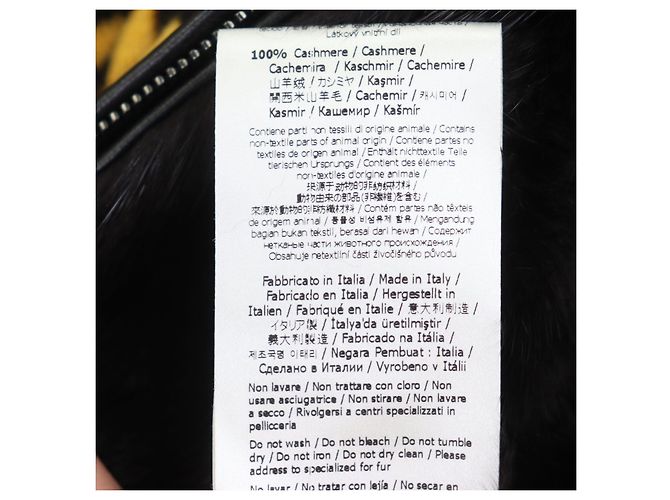 Látkový vnitřní díl
100% Cashmere / Cashmere /
Cachemira / Kaschmir / Cachemire /
山羊绒 / カシミヤ / Kaşmir /
開西米山羊毛 / Cachemir / 캐시미어 /
Kasmir / Кашемир / Kašmír
Contiene parti non tessili di origine animale / Contains
non-textile parts of animal origin / Contiene partes no
textiles de origen animal / Enthält nichttextile Teile
tierischen Ursprungs / Contient des éléments
non-textiles d'origine animale /
来源于动物的非纺织材料 /
動物由来の部品(非繊維)を含む /
來源於動物的非紡織材料 / Contém partes não têxteis
de origem animal / 동물성 비섬유제 함유 / Mengandung
bagian bukan tekstil, berasal dari hewan / Содержит
нетканые части животного происхождения /
Obsahuje netextilní části živočišného původu
Fabbricato in Italia / Made in Italy /
Fabricado en Italia / Hergestellt in
Italien / Fabriqué en Italie / 意大利制造 /
イタリア製 / İtalya'da üretilmiştir /
義大利製造 / Fabricado na Itália /
제조국명 이태리 / Negara Pembuat : Italia /
Сделано в Италии / Vyrobeno v Itálii
Non lavare / Non trattare con cloro / Non
usare asciugatrice / Non stirare / Non lavare
a secco / Rivolgersi a centri specializzati in
pellicceria
Do not wash / Do not bleach / Do not tumble
dry / Do not iron / Do not dry clean / Please
address to specialized for fur
No lavar / No tratar con lejía / No secar en